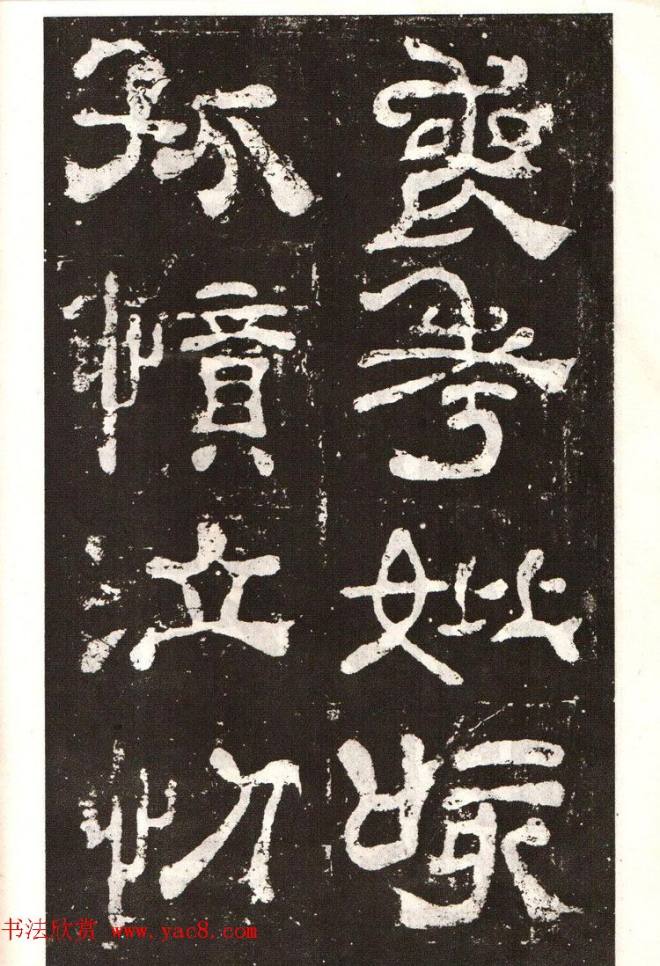 喪考妣咳
孤憤泣忉
书法欣赏 www.yac8.com